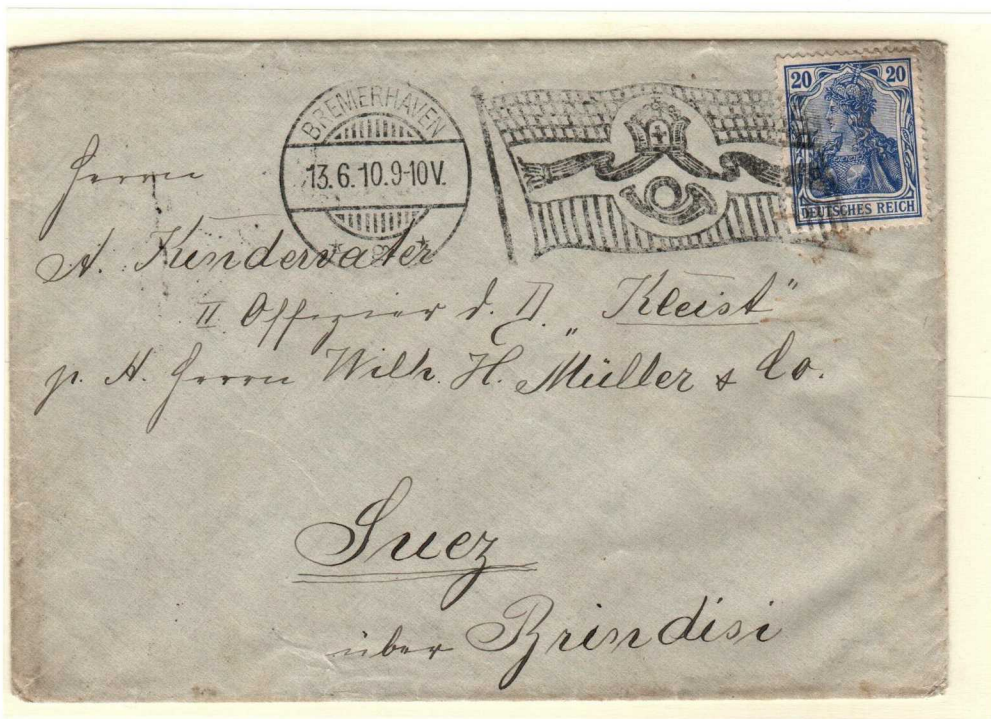 BREMERHAVEN
13.6.10.9-10V.
20 20
DEUTSCHES REICH
Herrn
A. Kindervater
II Offizier d. D. „Kleist"
p. A. Herrn Wilh. H. Müller & Co.
Suez
über Brindisi